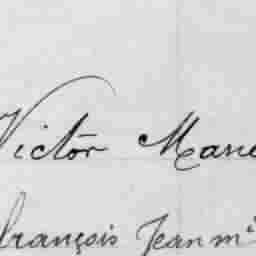 Victor Marie
françois Jean mie